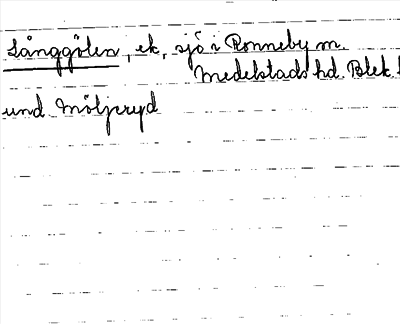 Långgölen, ek, sjö i Ronneby m.
Medelstads hd. Blek.
und Möljeryd